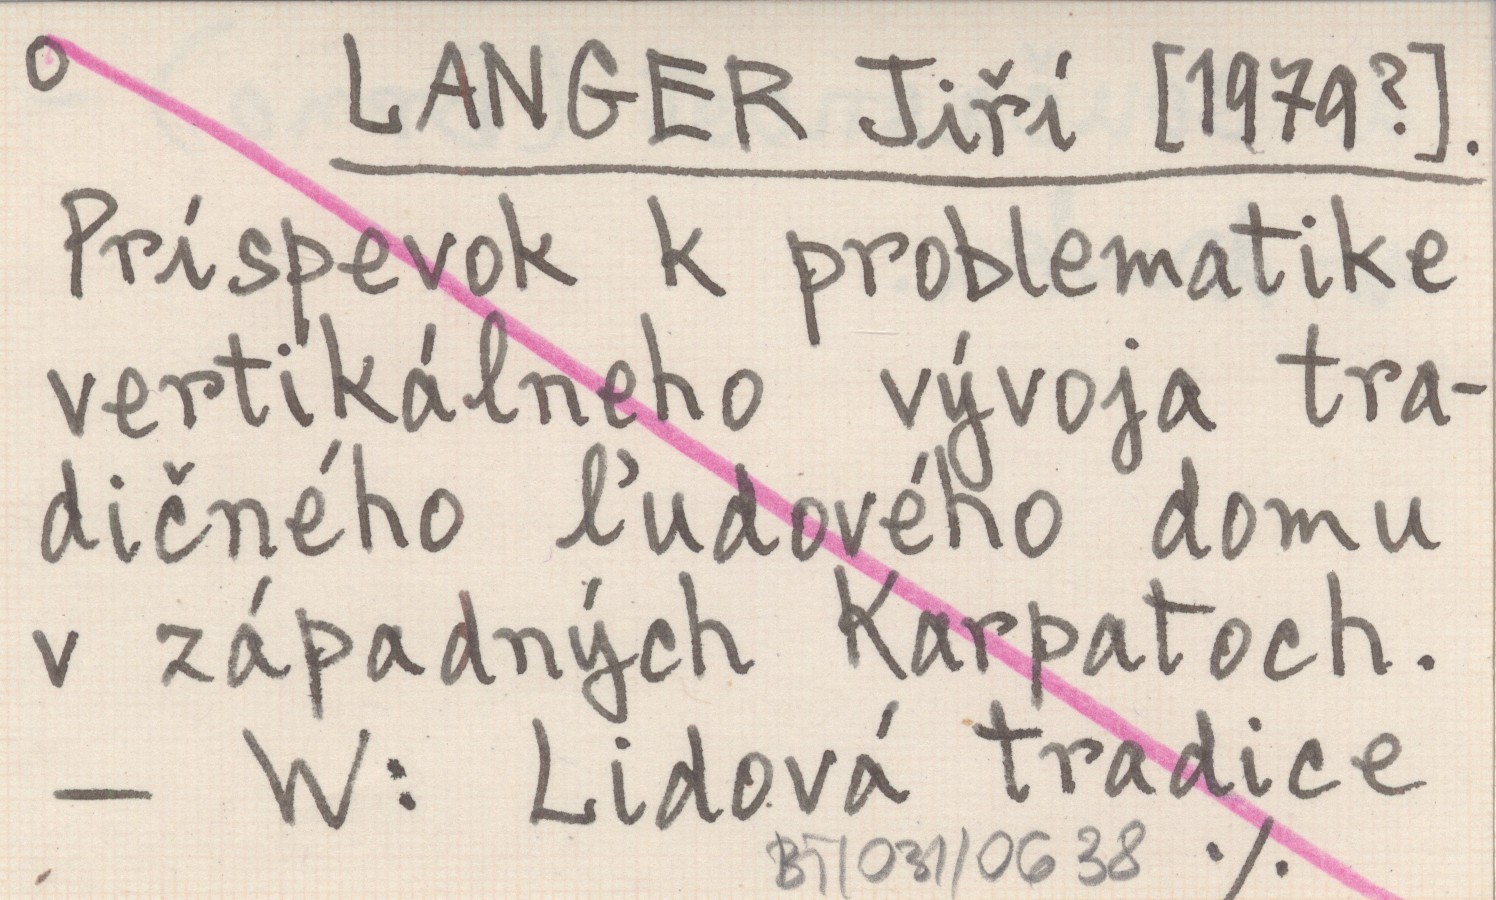 o LANGER Jiří [1979?].
Príspevok k problematike
vertikálneho vývoja tra-
dičného ľudového domu
v západných Karpatoch.
— W: Lidová tradice
BT/031/0638 ./.